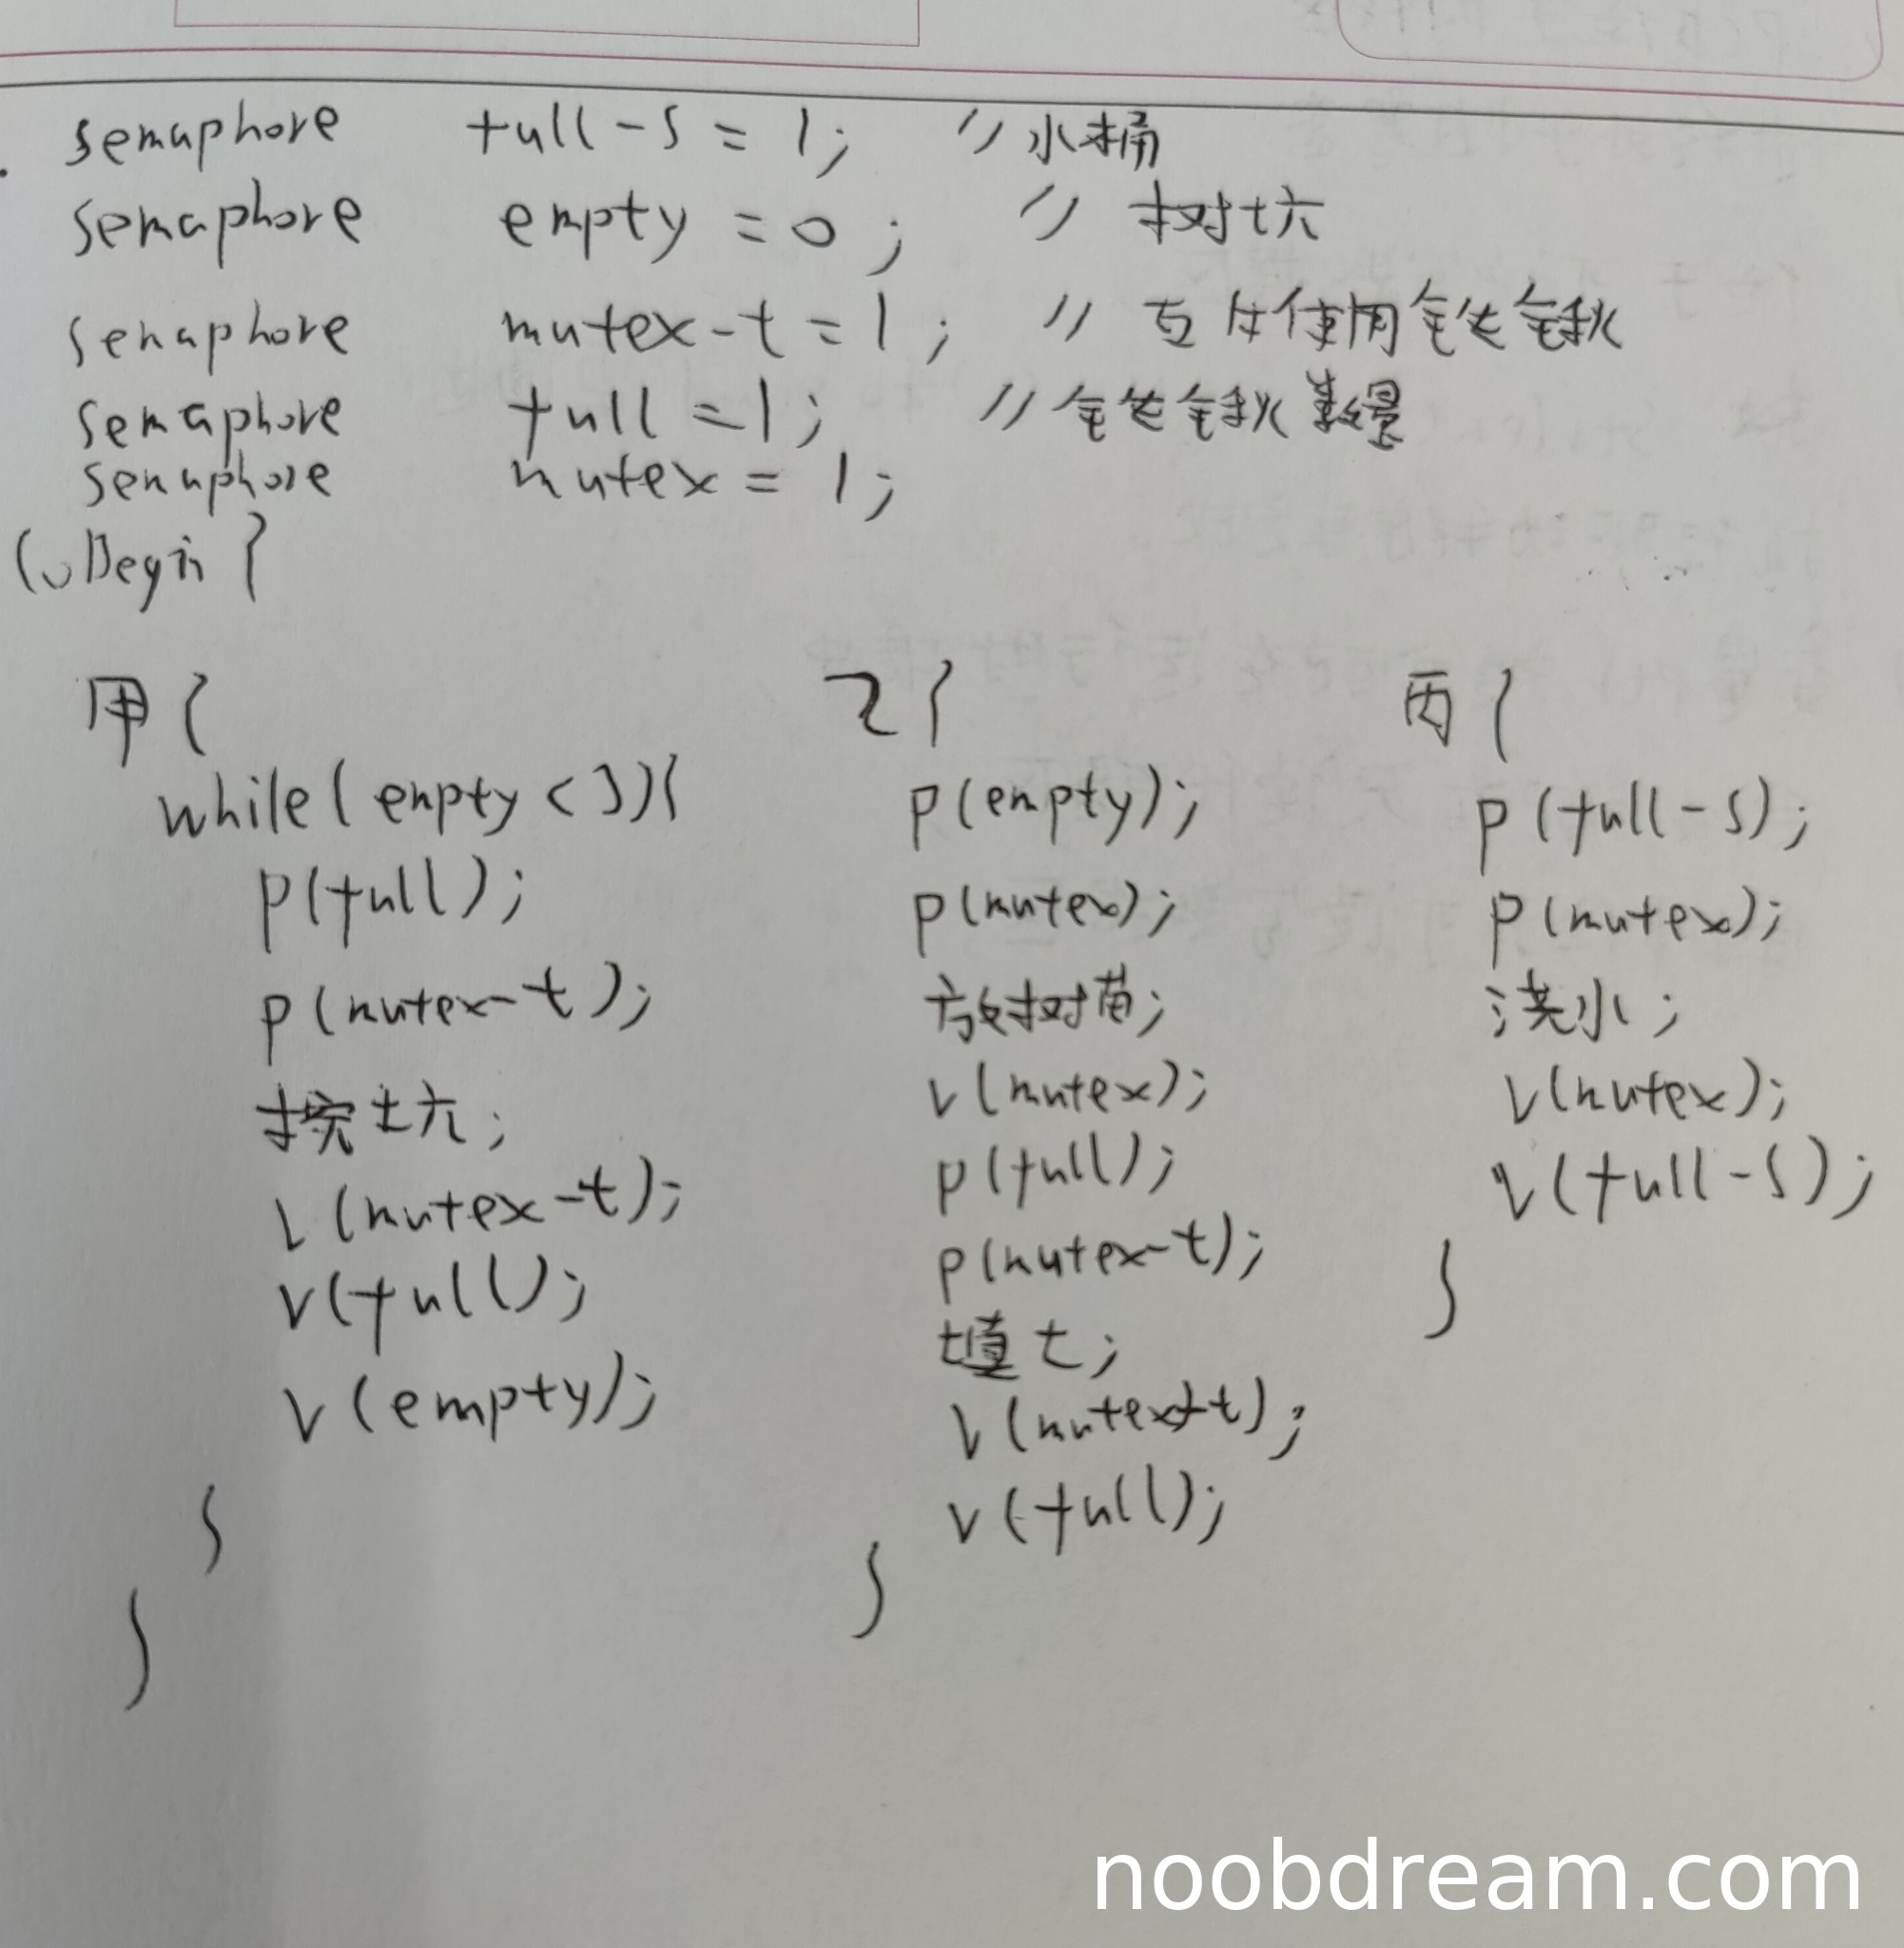 semaphore full-s = 1; // 水桶
semaphore empty = 0; // 树坑
semaphore mutex-t = 1; // 互斥使用铁锹
semaphore full = 1; // 铁锹数量
semaphore mutex = 1;
CoBegin {
甲{
while(empty < 3){
p(full);
p(mutex-t);
挖坑;
v(mutex-t);
v(full);
v(empty);
}
}
乙{
p(empty);
p(mutex);
放树苗;
v(mutex);
p(full);
p(mutex-t);
填土;
v(mutex-t);
v(full);
}
丙{
p(full-s);
p(mutex);
浇水;
v(mutex);
v(full-s);
}
noobdream.com